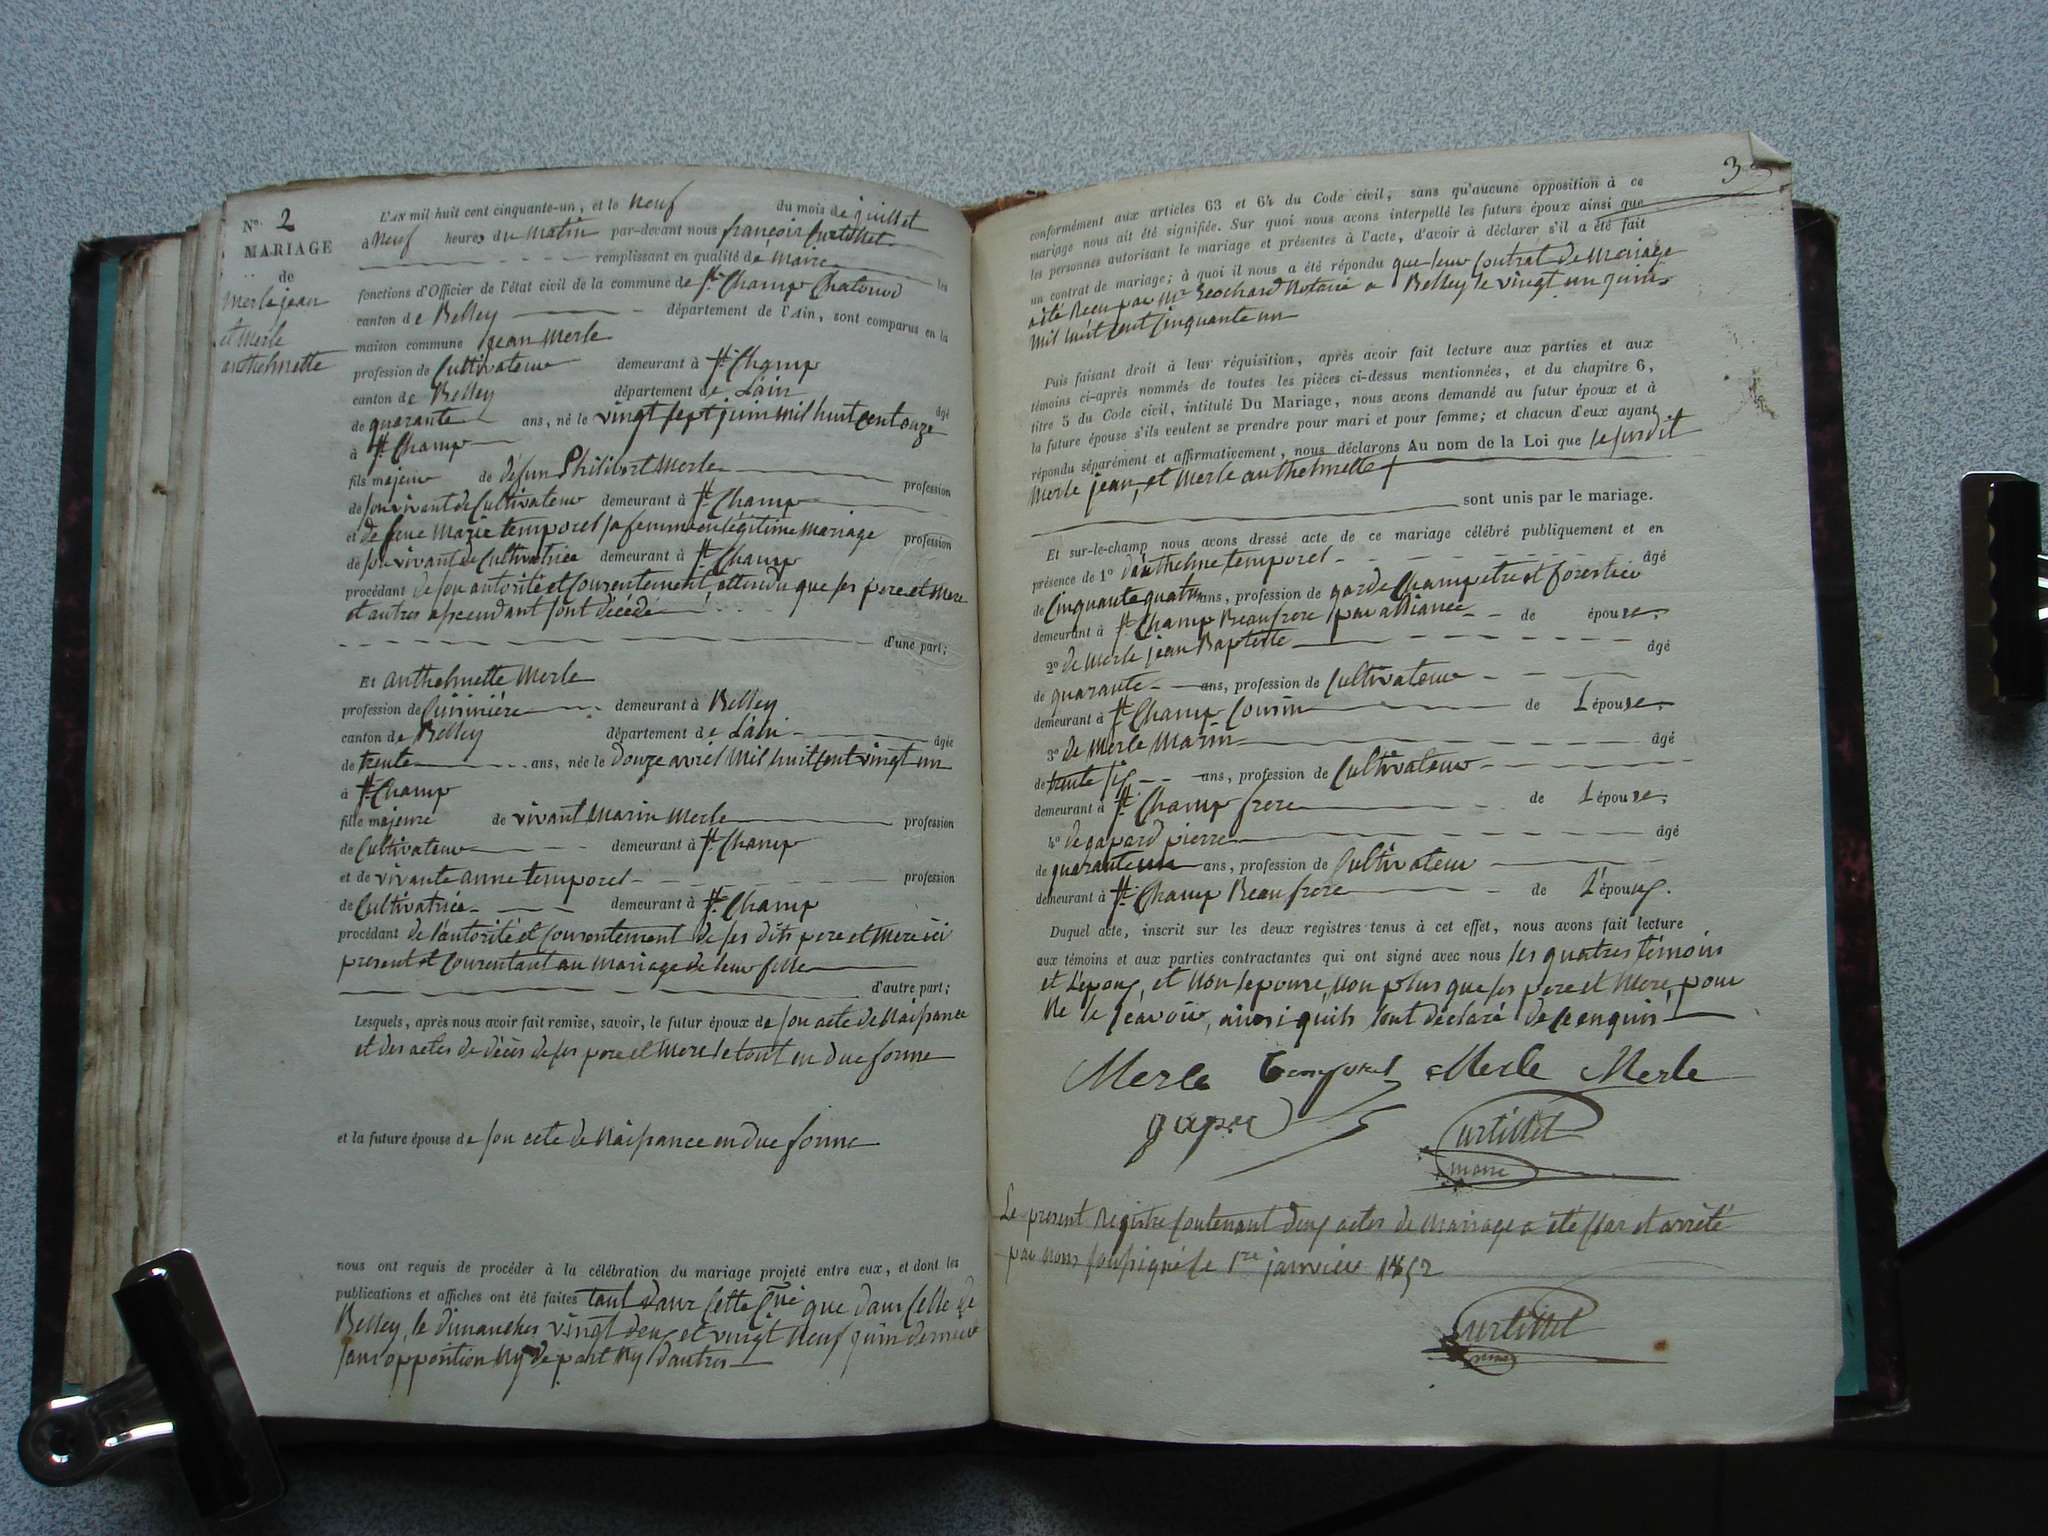 N° 2
MARIAGE
de
Merle jean
et Merle
anthelmette
L'AN mil huit cent cinquante-un, et le neuf du mois de juillet
à neuf heures du matin par-devant nous françois Curtillet
remplissant en qualité de maire les
fonctions d'Officier de l'état civil de la commune de St. Champ Chatonod
canton de Belley département de l'Ain, sont comparus en la
maison commune jean Merle
profession de Cultivateur demeurant à St. Champ
canton de Belley département de Láin âgé
de quarante ans, né le vingt sept juin mil huit cent onze
à St. Champ
fils majeur de défun Philibert Merle profession
de son vivant de Cultivateur demeurant à St. Champ
et de feue Marie temporel sa femme en légitime mariage profession
de son vivant de Cultivatrice demeurant à St. Champ
procédant de son autorité et Consentement, attendu que ses pere et mere
et autres assendant sont décédé
d'une part;
Et anthelmette Merle
profession de Cuisiniére demeurant à Belley
canton de Belley département de Láin âgée
de trente ans, née le douze avril mil huit cent vingt un
à St. Champ
fille majeure de vivant Marin Merle profession
de Cultivateur demeurant à St. Champ
et de vivante anne temporel profession
de Cultivatrice demeurant à St. Champ
procédant de l'autorité et Consentement de ses dits pere et mere ici
present et Consentant au mariage de leur fille
d'autre part;
Lesquels, après nous avoir fait remise, savoir, le futur époux de son acte de Naissance
et des actes de décès de ses pere et mere le tout en due forme
et la future épouse de son acte de Naissance en due forme
nous ont requis de procéder à la célébration du mariage projeté entre eux, et dont les
publications et affiches ont été faites tant dans cette Cne que dans celle de
Belley, le dimanches vingt deux et vingt neuf juin dernier
sans opposition ny de part ny dautres
3
conformément aux articles 63 et 64 du Code civil, sans qu'aucune opposition à ce
mariage nous ait été signifiée. Sur quoi nous avons interpellé les futurs époux ainsi que
les personnes autorisant le mariage et présentes à l'acte, d'avoir à déclarer s'il a été fait
un contrat de mariage; à quoi il nous a été répondu que leur Contrat de Mariage
a été Recu par Mr Notaire a Belley le vingt un juin
mil huit cent Cinquante un
Puis faisant droit à leur réquisition, après avoir fait lecture aux parties et aux
témoins ci-après nommés de toutes les pièces ci-dessus mentionnées, et du chapitre 6,
titre 5 du Code civil, intitulé Du Mariage, nous avons demandé au futur époux et à
la future épouse s'ils veulent se prendre pour mari et pour femme; et chacun d'eux ayant
répondu séparément et affirmativement, nous déclarons Au nom de la Loi que le surdit
Merle jean, et Merle anthelmette
sont unis par le mariage.
Et sur-le-champ nous avons dressé acte de ce mariage célébré publiquement et en
présence de 1° d'anthelme temporel âgé
de Cinquante quatre ans, profession de garde Champetre et forestier
demeurant à St. Champ Beaufrere par alliance de épouse.
2° de Merle jean Baptiste âgé
de quarante ans, profession de Cultivateur
demeurant à St. Champ Cousin de L épouse.
3° de Merle Marin âgé
de trente six ans, profession de Cultivateur
demeurant à St. Champ frere de L épouse.
4° de gapard pierre âgé
de quarante un ans, profession de Cultivateur
demeurant à St. Champ Beaufrere de L'époux.
Duquel acte, inscrit sur les deux registres tenus à cet effet, nous avons fait lecture
aux témoins et aux parties contractantes qui ont signé avec nous les quatres témoins
et L'epoux, et non lepouse, non plus que ses pere et Mere, pour
ne le scavoir, ainsi quils l'ont déclaré de ce enquis
Merle temporel Merle Merle
gapard Curtillet
maire
Le present Registre Contenant deux actes de mariage a été clos et arrêté
par nous soussigné le 1re janvier 1852
Curtillet
maire